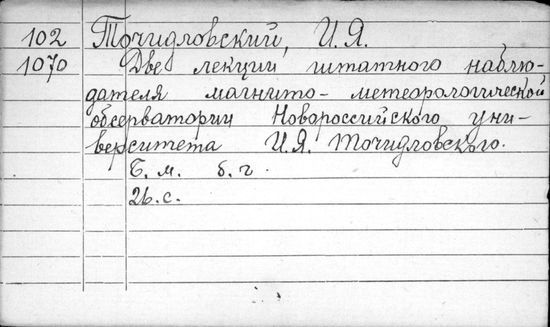 102 Точидловский, И.Я.
1070 Две лекции штатного наблю-
дателя магнито-метеорологической
обсерватории Новороссийского уни-
верситета И.Я. Точидловского.
Б. м. б. г.
26.с.